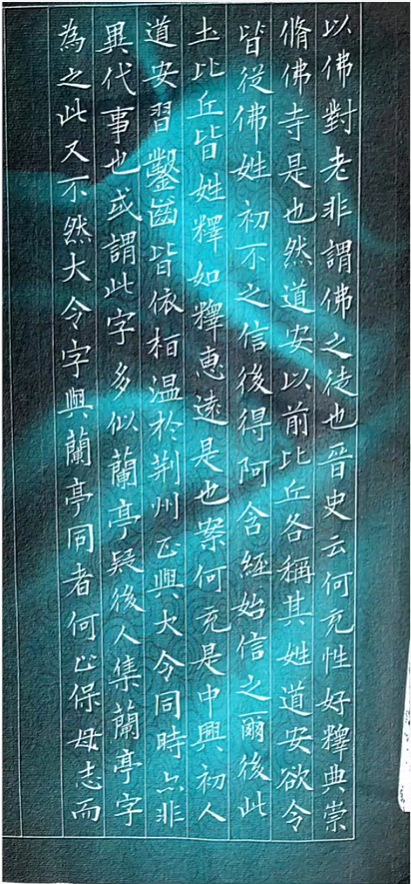 以佛對老非謂佛之徒也晉史云何充性好釋典崇
脩佛寺是也然道安以前比丘各稱其姓道安欲令
皆從佛姓初不之信後得阿含經始信之爾後此
土比丘皆姓釋如釋惠遠是也案何充是中興初人
道安習鑿齒皆依栢溫於荆州正與大令同時亦非
異代事也或謂此字多似蘭亭疑後人集蘭亭字
為之此又不然大令字與蘭亭同者何止保母志而